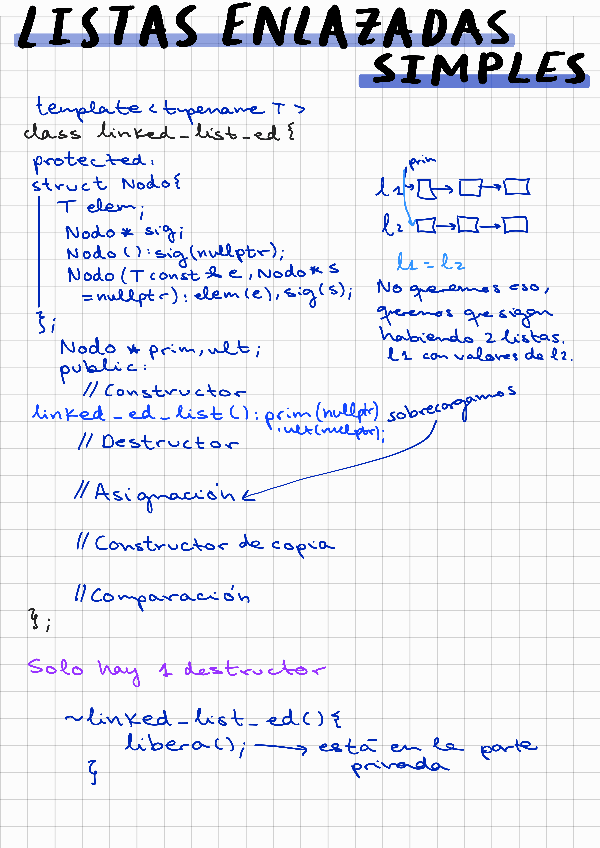 LISTAS ENLAZADAS
SIMPLES
template <typename T>
class linked_list_ed {
protected:
struct Nodo{
T elem;
Nodo * sig;
Nodo () : sig(nullptr);
Nodo (T const & e, Nodo * s
= nullptr) : elem(e), sig(s);
};
prim
l1
l2
l1 = l2
No queremos eso,
queremos que sigan
habiendo 2 listas.
l1 con valores de l2.
Nodo * prim, ult;
public:
// Constructor
linked_ed_list() : prim(nullptr)
, ult(nullptr);
sobrecargamos
// Destructor
// Asignación
// Constructor de copia
// Comparación
};
Solo hay 1 destructor
~linked_list_ed() {
libera(); → está en la parte
privada
}